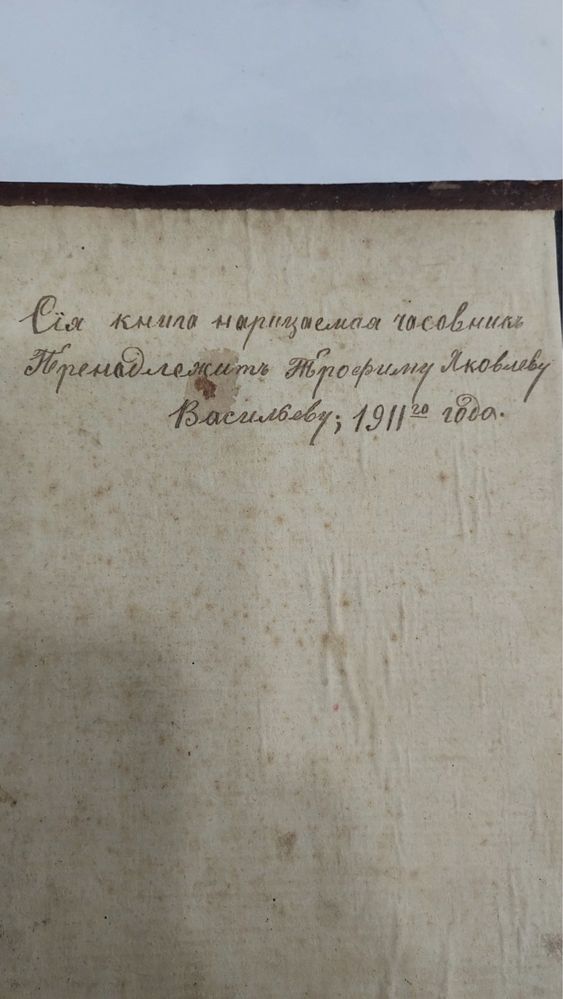 Сія книга нарицаемая часовникъ
Пренадлежитъ Трофиму Яковлеву
Васильеву; 1911го года.